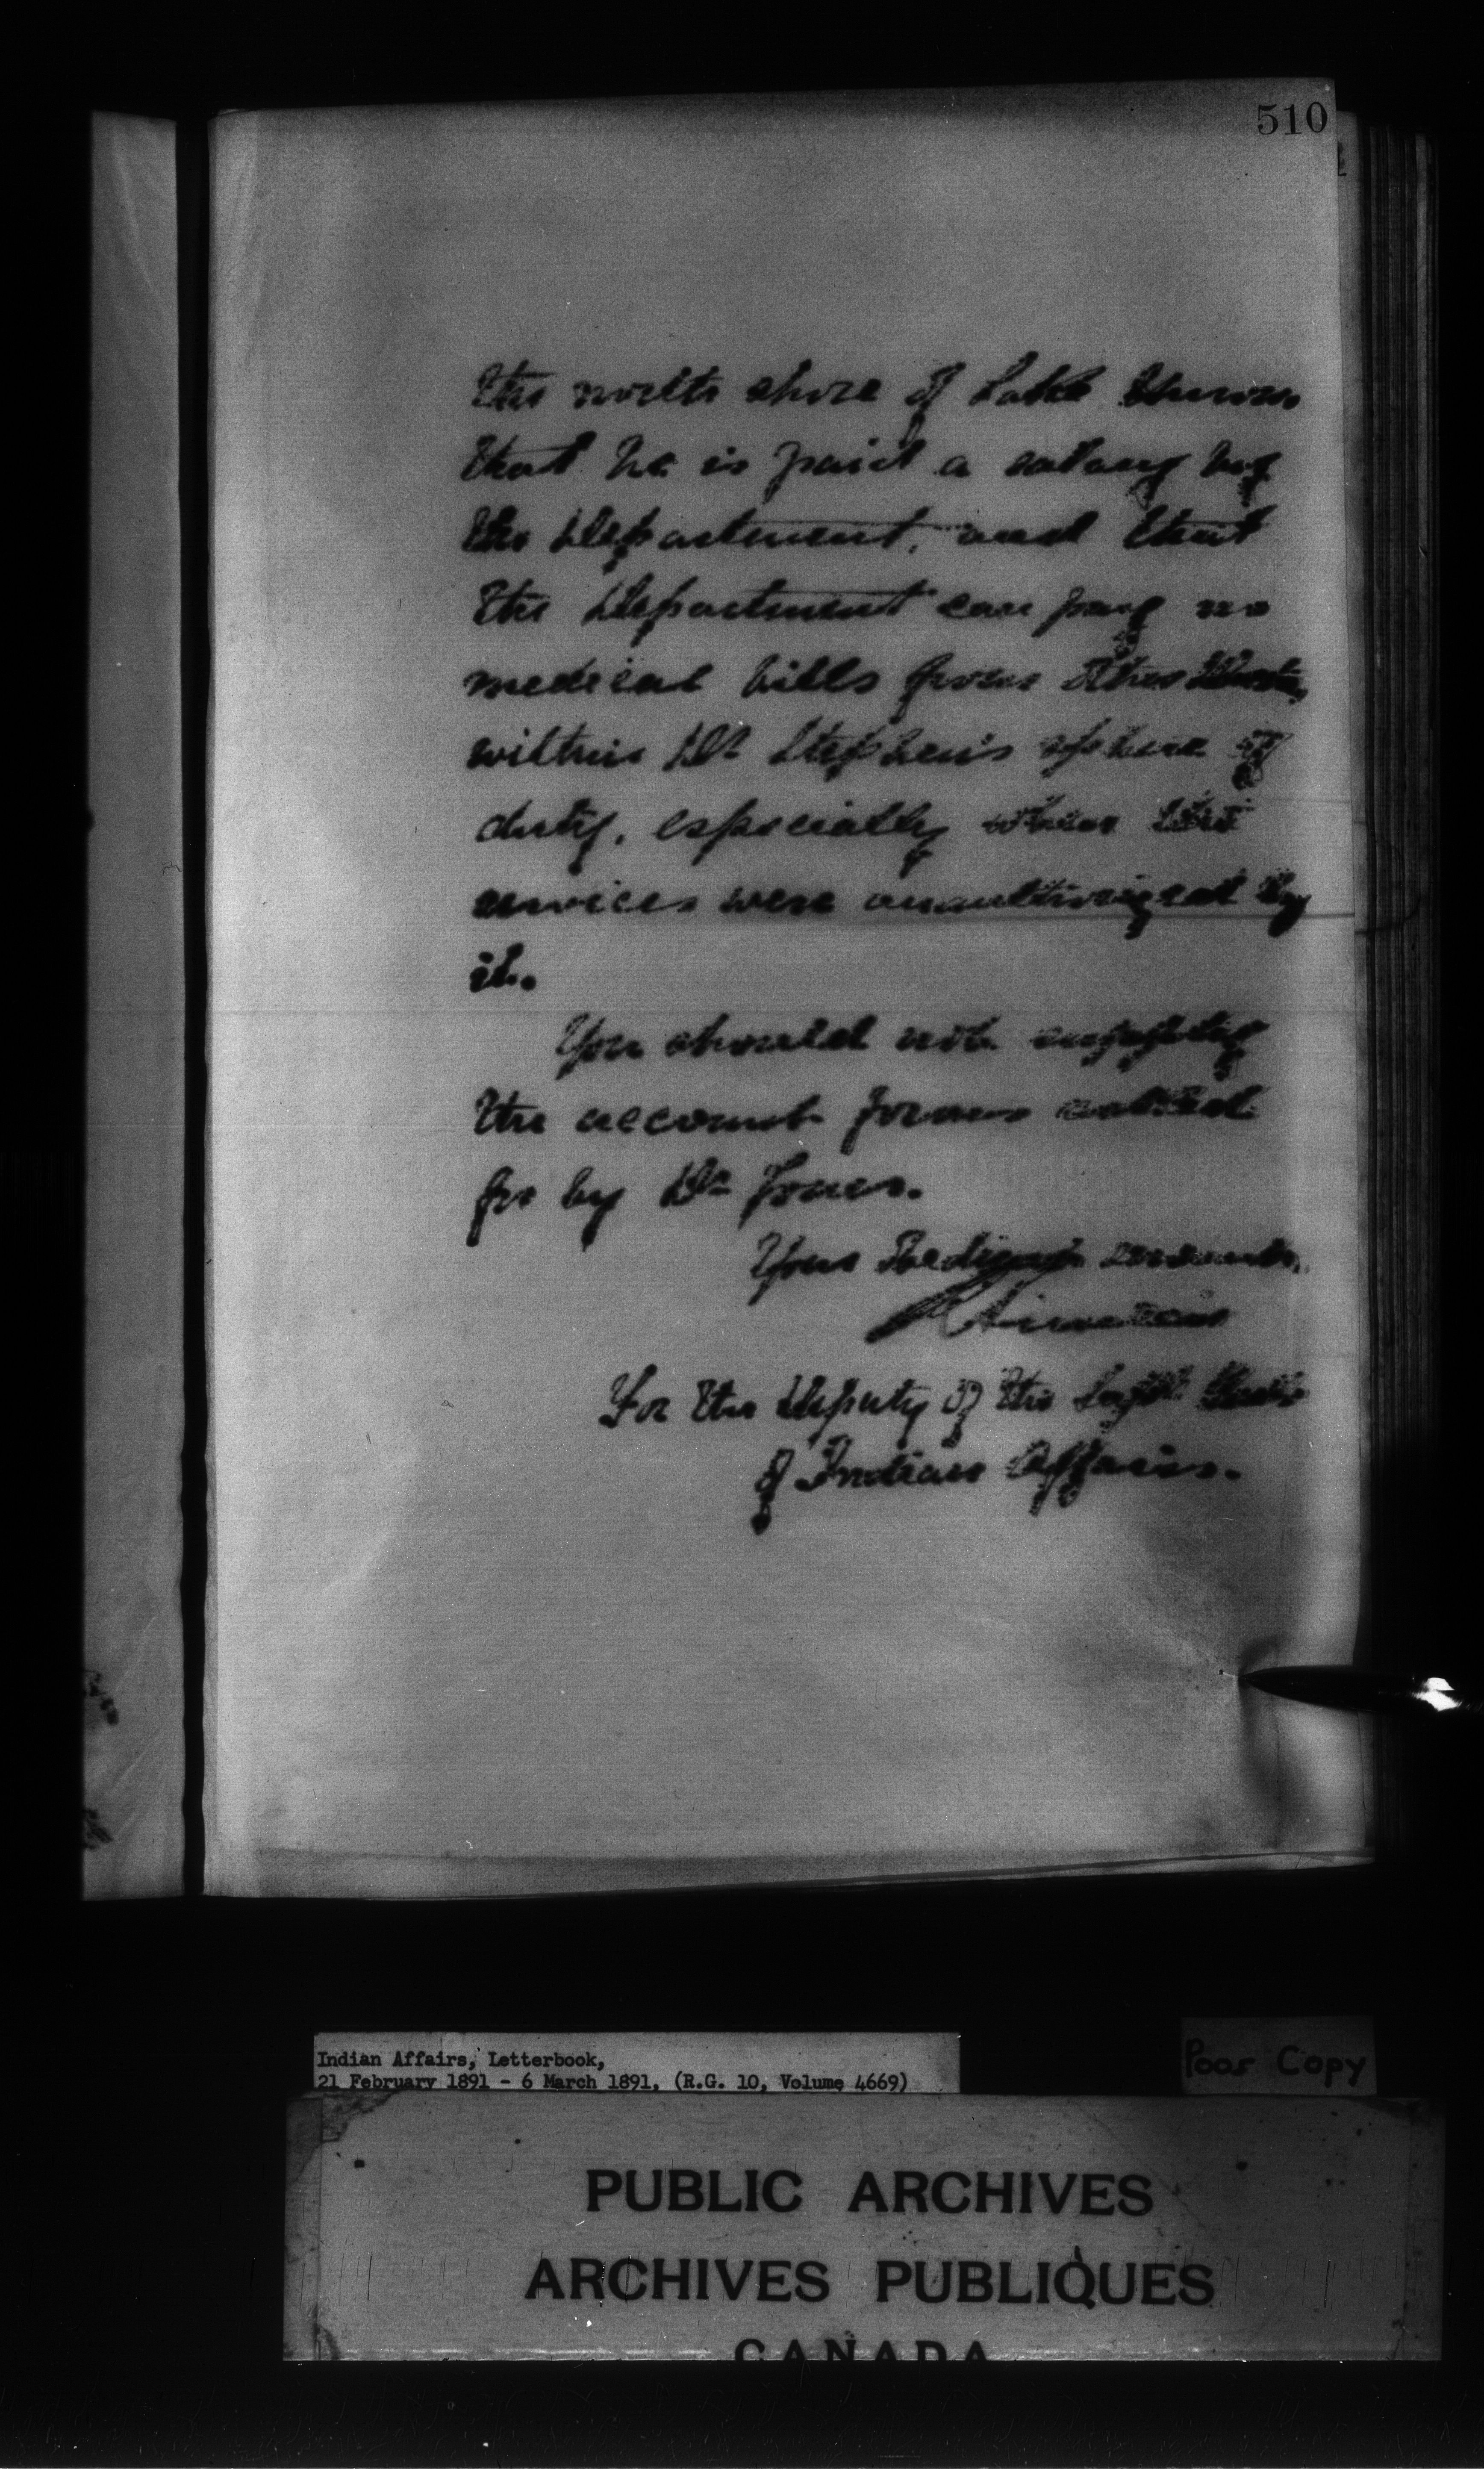 510
the north shore of Lake Huron
that he is paid a salary by
the Department, and that
the Department can pay no
medical bills from other
within Dr Stephen's sphere of
duty, especially when the
services were unauthorized by
it.
You should not supply
the account forms called
for by Dr Jones.
Your obedient servant,
For the Deputy of the Supt. Genl.
of Indian Affairs.
Indian Affairs, Letterbook,
21 February 1891 - 6 March 1891, (R.G. 10, Volume 4669)
Poor Copy
PUBLIC ARCHIVES
ARCHIVES PUBLIQUES
CANADA